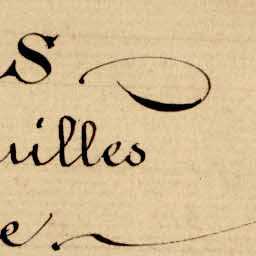 s
uilles
e.